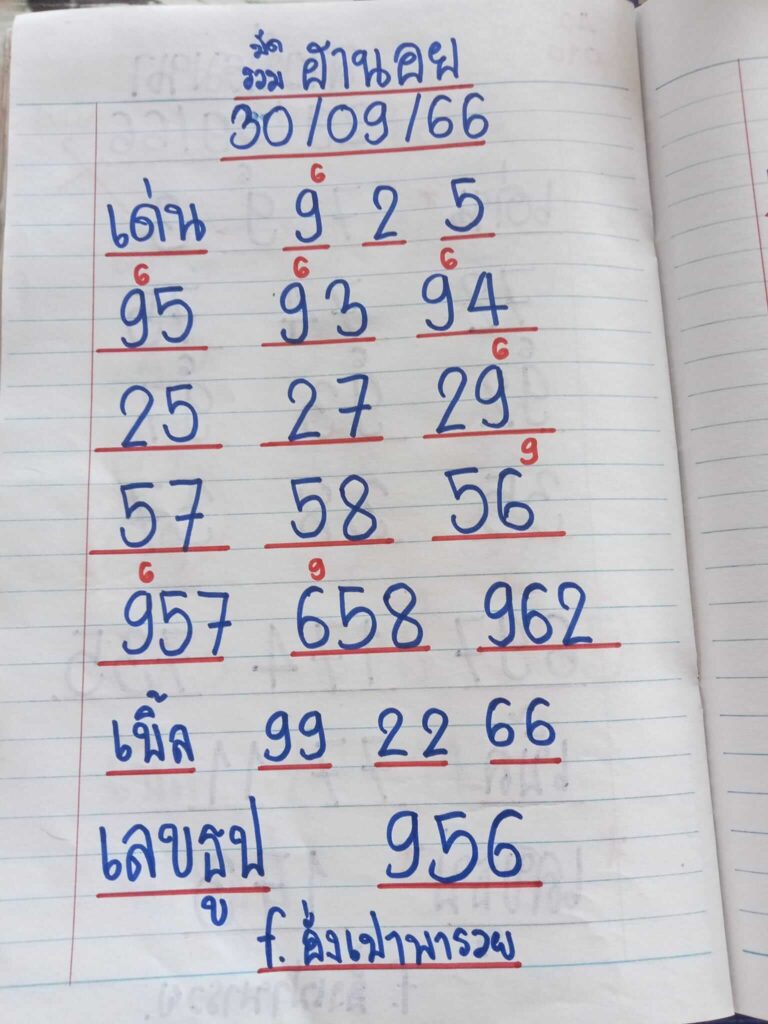 มัดรวม ฮานอย
30/09/66
6
เด่น 9 2 5
6 6 6
95 93 94
6
25 27 29
9
57 58 56
6 9
957 658 962
เบิ้ล 99 22 66
เลขธูป 956
f. อั่งเปาพารวย